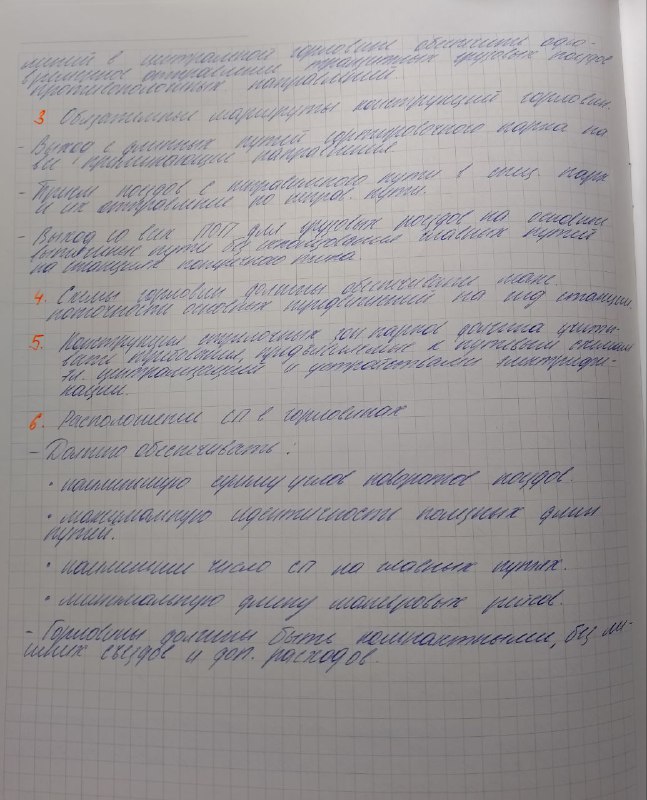 путей в центральной горловине обеспечение одно-
временное отправление транзитных грузовых поездов
противоположных направлений.
3 Обязательные маршруты конструкций горловин.
- Выход с длинных путей сортировочного парка на
все примыкающие направления.
- Прием поездов с неправильного пути в спец. парк
и их отправление по неправ. пути.
- Выход со всех ПОП для грузовых поездов на основные
пути без использования главных путей
на станциях поперечного типа
4. Схемы горловин должны обеспечивать макс.
поточность основных передвижений на ж/д станции.
5. Конструкция стрелочных зон парков должна учиты-
вать требования, предъявляемые к путевым схемам
эл. централизацией и устройствами электрифи-
кации.
6. Расположение СП в горловинах
- Должно обеспечивать:
• наименьшую сумму углов поворотов поездов.
• максимальную идентичность полезных длин
путей.
• наименьшее число СП на главных путях.
• минимальную длину маневровых рейсов.
- Горловины должны быть компактными, без ли-
шних съездов и доп. расходов.